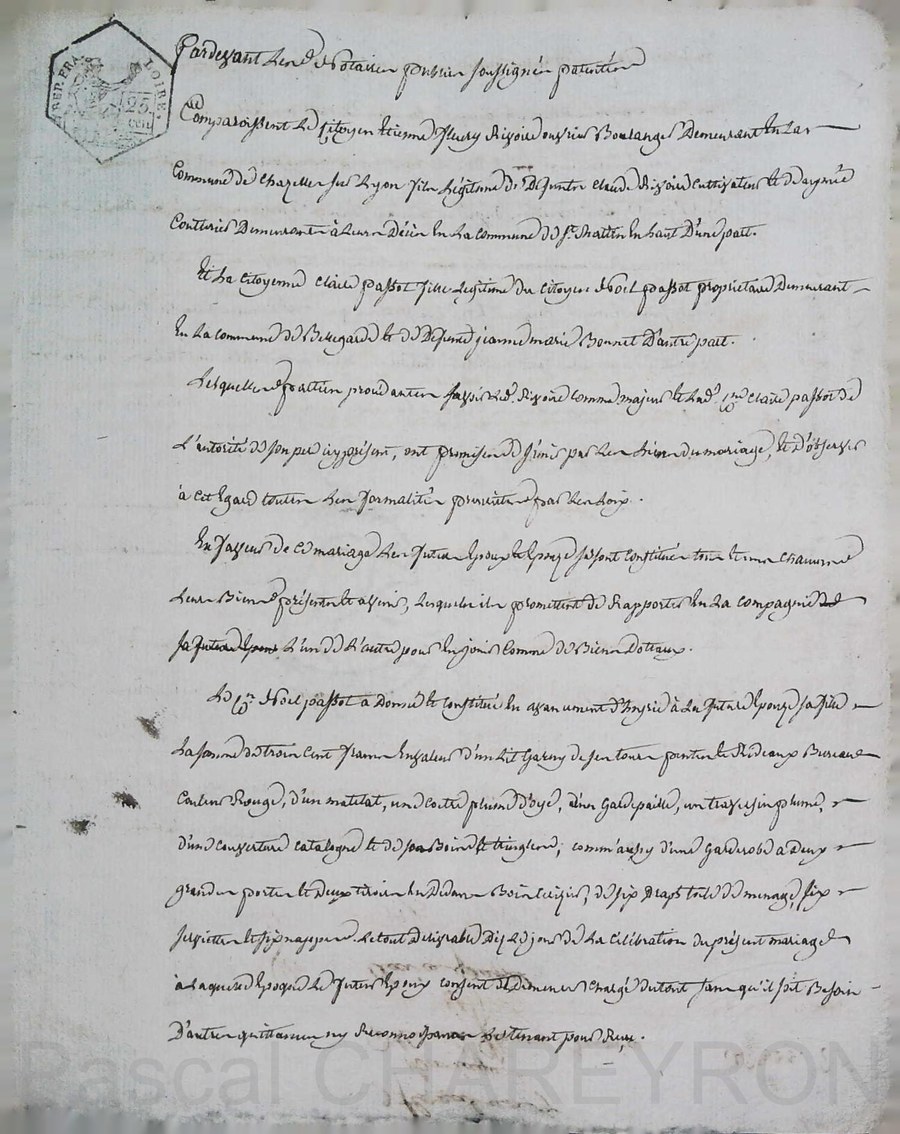 REP. FRA. LOIRE.
25 cen
Pardevant Les Notaires publics soussignés patentés
Comparoissent Le Citoyen Etienne fleury Rivoire ouvrier Boulanger Demeurant En La
Commune de Chazelle sur Lyon fils Légitime de Défunts claude Rivoire Cultivateur Et de
Couturier Demeurants à Leur Décès En La Commune de St. En haut D'une part.
Et La Citoyenne claire passot fille Légitime du Citoyen Noel passot propriétaire Demeurant
En La commune de Bellegarde Et de Défunte jeanne marie Bonnet D'autre part.
Lesquelles parties procédantes savoir Led. Rivoire Comme majeur Et Lad. Cne claire passot de
L'autorité de son pere icy présent, ont promis de s'unir par Les Liens du mariage, Et D'observer
à Cet Egard toutes Les formalités prescrittes par Les Loix.
En faveur de Ce mariage Les futurs Epoux Et Epouse se sont Constitués tous Et uns chacuns
Leurs Biens présents Et avenir, Lesquels ils promettent de Rapporter En La Compagnie de
sa future Epouse L'un de L'autre pour En jouir Comme de Biens Dotaux.
Le Cn Noel passot a Donné Et Constitué En avancement d'hoyrie à La future Epouse sa fille
La somme de trois Cent francs En valeur d'un Lit Garny de son tour pentes Et Rideaux Bureau
Couleur Rouge, d'un matelat, une coetre plume d'oye, d'un Gardepaille, un traversin plume,
d'une Couverture catalogne Et de son Bois Et tringles; comm'aussy d'une Garderobe a Deux
grandes portes Et Deux tiroirs En Dedans Bois Cerizier, de six Draps toile de menage, six
serviettes Et six nappes. Le tout Délivrable Dez Le jour de La Célébration du présent mariage
à Laquelle Epoque Le futur Epoux consent de Demeurer Chargé du tout sans qu'il soit Besoin
D'autres quittances ny Reconnoissances Les tenant pour Reçu.
Pascal CHAREYRON